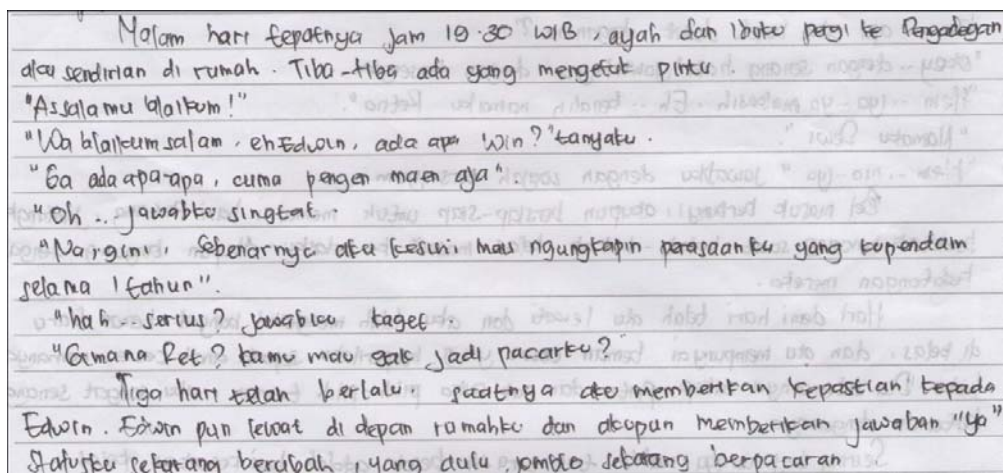 Malam hari tepatnya jam 19.30 WIB, ayah dan ibuku pergi ke Pengadegan
aku sendirian di rumah. Tiba-tiba ada yang mengetuk pintu.
"Assalamu alaikum!"
"Wa alaikum salam, eh Edwin, ada apa Win?" tanyaku.
"Ga ada apa-apa, cuma pengen maen aja".
"Oh... jawabku singkat.
sebenarnya aku kesini mau ngungkapin perasaanku yang kupendam
selama 1 tahun".
"hah... serius? jawabku kaget.
"Gimana Ret? kamu mau gak jadi pacarku?"
Tiga hari telah berlalu saatnya aku memberikan kepastian kepada
Edwin. Edwin pun lewat di depan rumahku dan akupun memberikan jawaban "ya"
Statusku sekarang berubah, yang dulu jomblo sekarang berpacaran